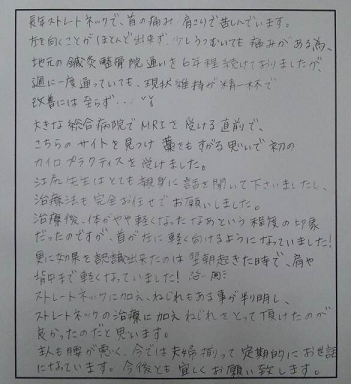 長年ストレートネックで、首の痛み・肩こりで苦しんでいます。
左を向くことがほとんど出来ず、少しうつむいても痛みがある為、
地元の鍼灸整骨院通いを6年程続けておりましたが、
週に一度通っていても、現状維持が精一杯で
改善には至らず…
大きな総合病院でMRIを受ける直前で、
こちらのサイトを見つけ藁をもすがる思いで初の
カイロプラクティスを受けました。
先生はとても親身に話を聞いて下さいましたし、
治療法も完全お任せでお願いしました。
治療後、体がやや軽くなったなあという程度の印象
だったのですが、首が左に軽く向けるようになっていました!
更に効果を認識出来たのは翌朝起きた時で、肩や
背中まで軽くなっていました!
ストレートネックに加え、ねじれもある事が判明し、
ストレートネックの治療に加えねじれをとって頂けたのが
良かったのだと思います。
主人も腰が悪く、今では夫婦揃って定期的にお世話
になっています。今後とも宜しくお願い致します。